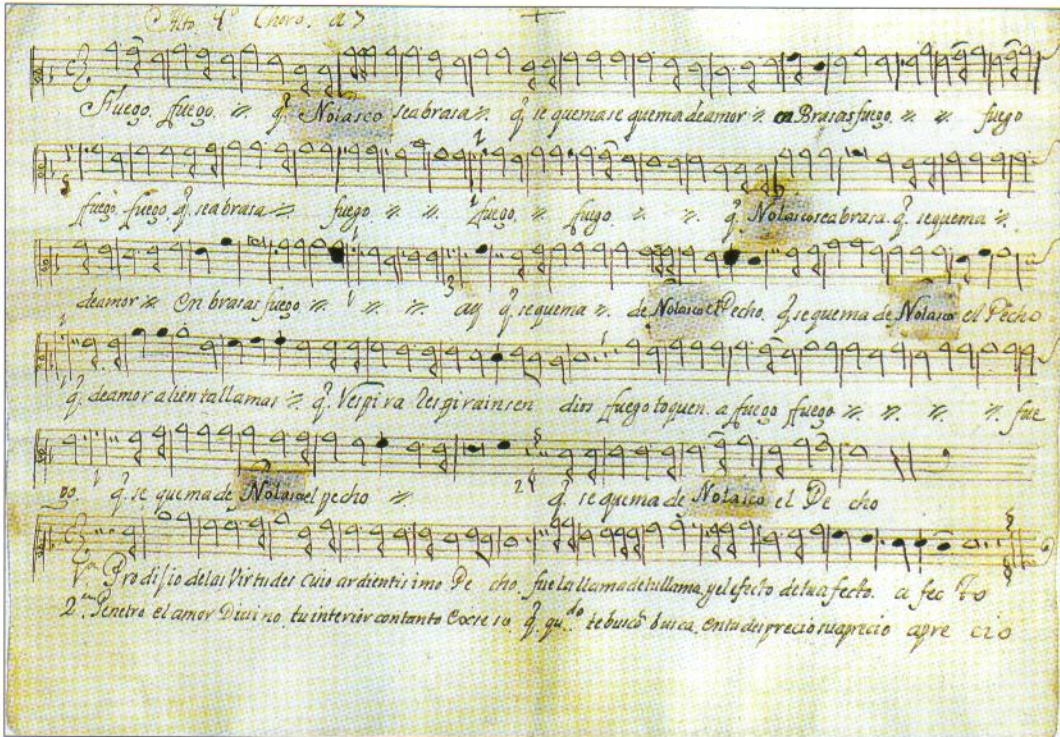 Alto. 1º Choro. a 7
Fuego. fuego. q̃. Nolasco seabrasa q̃. se quema se quema deamor en Brasas fuego. fuego
fuego. fuego. q̃. seabrasa fuego fuego. fuego q̃. Nolasco seabrasa. q̃. sequema
deamor en brasas fuego ay q̃. sequema de Nolasco el Pecho. q̃. se quema de Nolasco el Pecho
q̃. deamor alientallamas q̃. Respira Respirainsen dios fuegotoquen. a fuego fuego fue
go. q̃. se quema de Nolasco el pecho q̃. se quema de Nolasco el Pe cho
Prodisio delas Virtudes cuio ardientisimo Pe cho. fue la llama detullama, yel efecto detuafecto. a fec to
2. Penetro el amor Diuino tu interior contanto Excseso q̃. qu.do tebusco busca. entudesprecio suaprecio apre cio